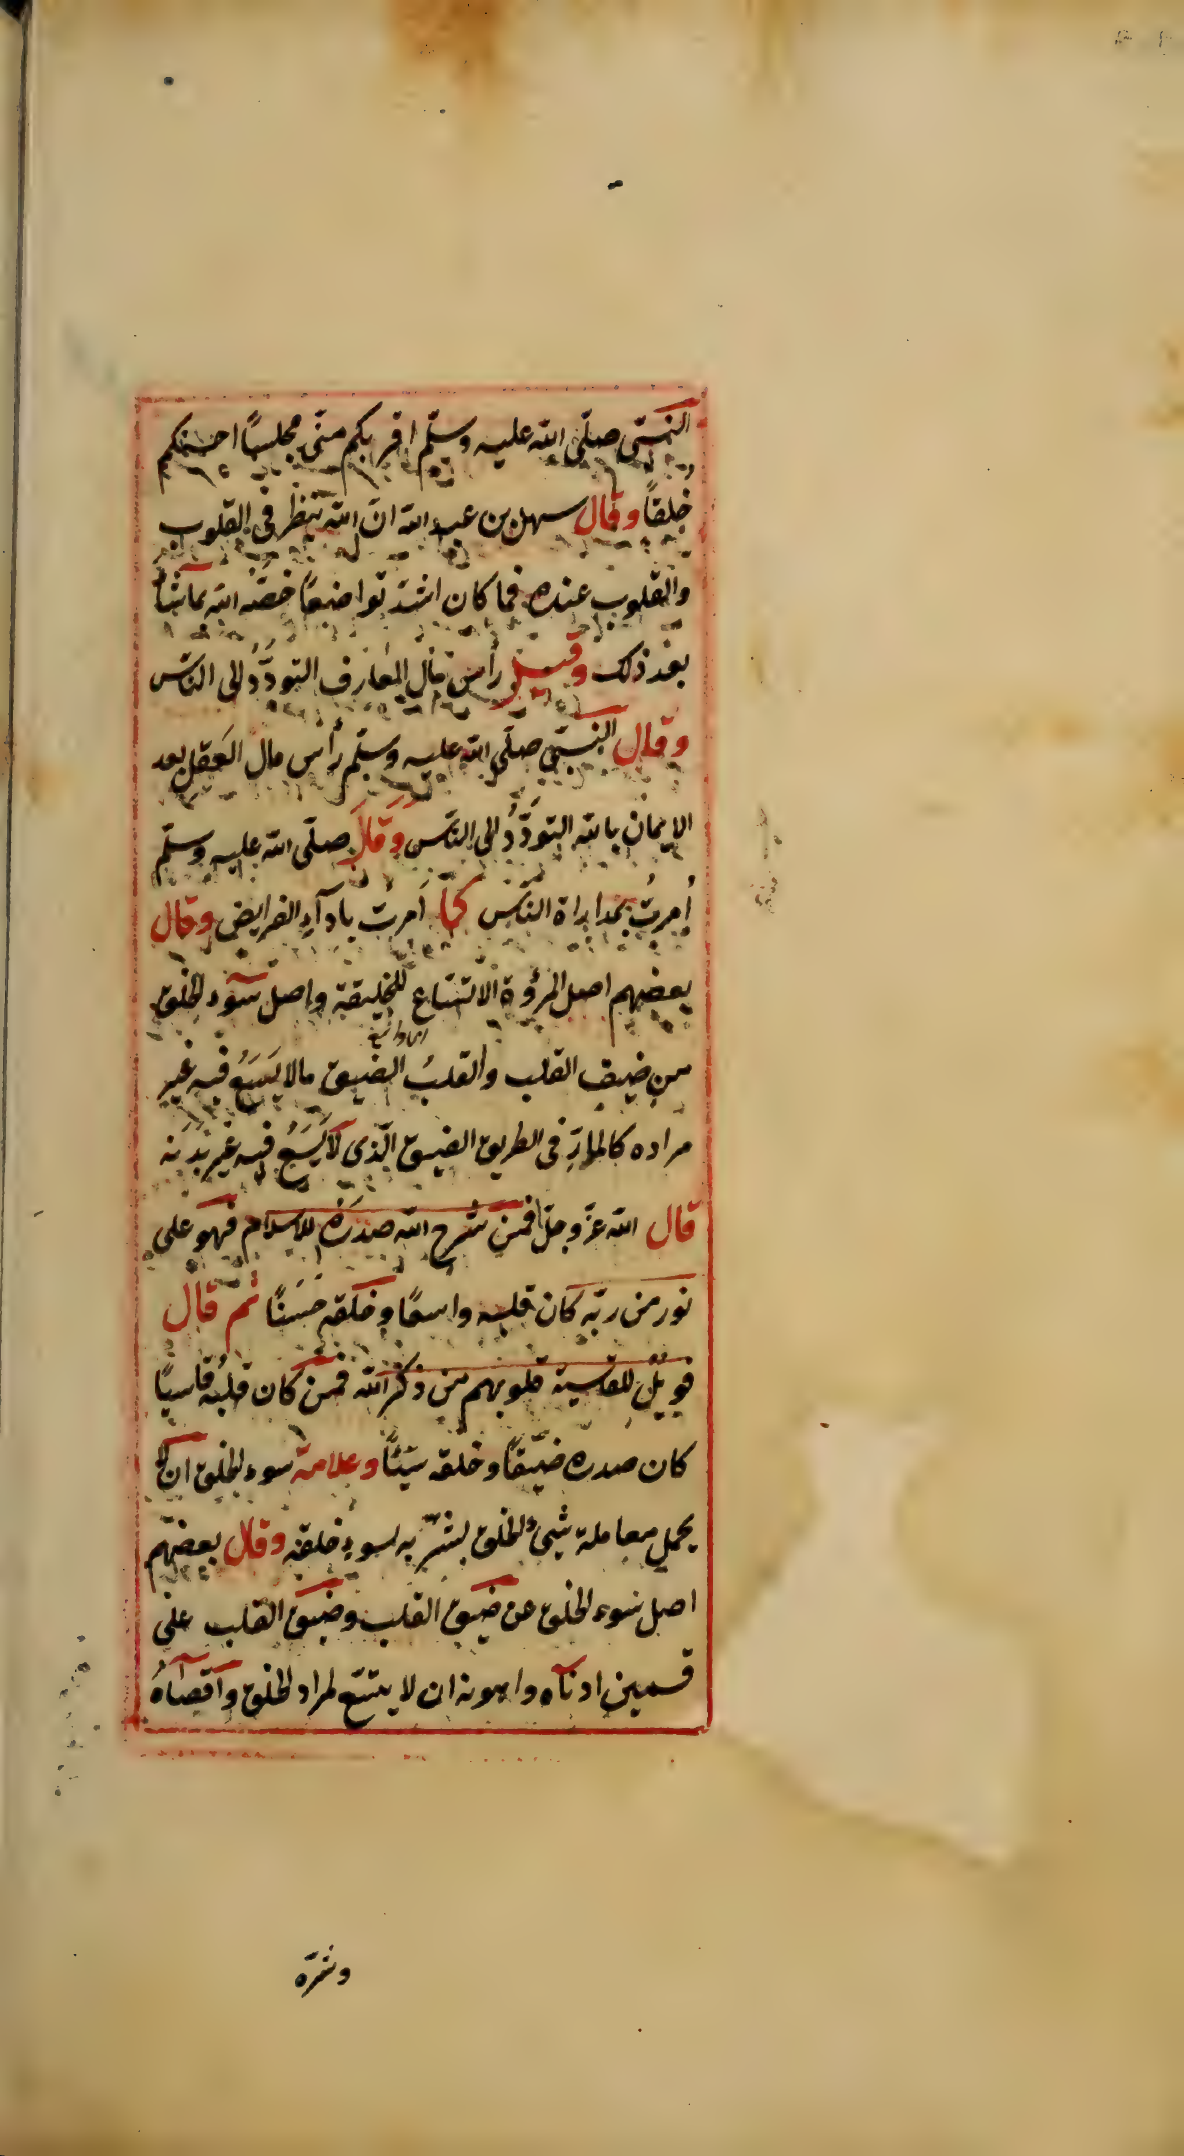 النبيّ صلّى الله عليه وسلّم اقربكم منّى مجلسًا احسنكم
خُلقًا وقال سهل بن عبد الله انّ الله ينظر فى القلوب
والقلوب عنده فما كان اشدّ تواضعًا خصّه الله بما شآء
بعد ذلك وقيل رأس مال المعارف التودّدُ الى النّاس
وقال النبيّ صلّى الله عليه وسلّم رأس مال العَقل بعد
الايمان بالله التودّدُ الى النّاس وَقالَ صلّى الله عليه وسلّم
أمِرتُ بمداراة النّاس كما أمرتُ باداَء الفرايض وقال
بعضهم اصل المرؤة الاتّساع للخليقة واصل سوء الخلق
من ضيق القلب والقلبُ الضيق مالا يَسَعُ فيه غير
مراده كالمارّ فى الطريق الضيق الّذى لا يَسَعُ فيه غير بَدَنه
قال الله عزّ وجلّ افمن شرح الله صدرَه للاسلام فهو على
نور من ربّه كان قلبه واسعًا وخلقه حَسَنًا ثم قال
فويْلٌ للقاسية قلوبهم من ذكر الله فمن كان قلبُه قاسيًا
كان صدره ضيّقًا وخلقه سيّئًا وعلامة سوء الخلق ان لا
يحمل معاملة شئ الخلق بشرّ به لسوء خلقه وقال بعضهم
اصل سوء الخلق من ضيق القلب وضيق القلب على
قسمين ادنآه واهونه ان لا يتّسع لمراد الخلق وأقصآهُ
وشرّه